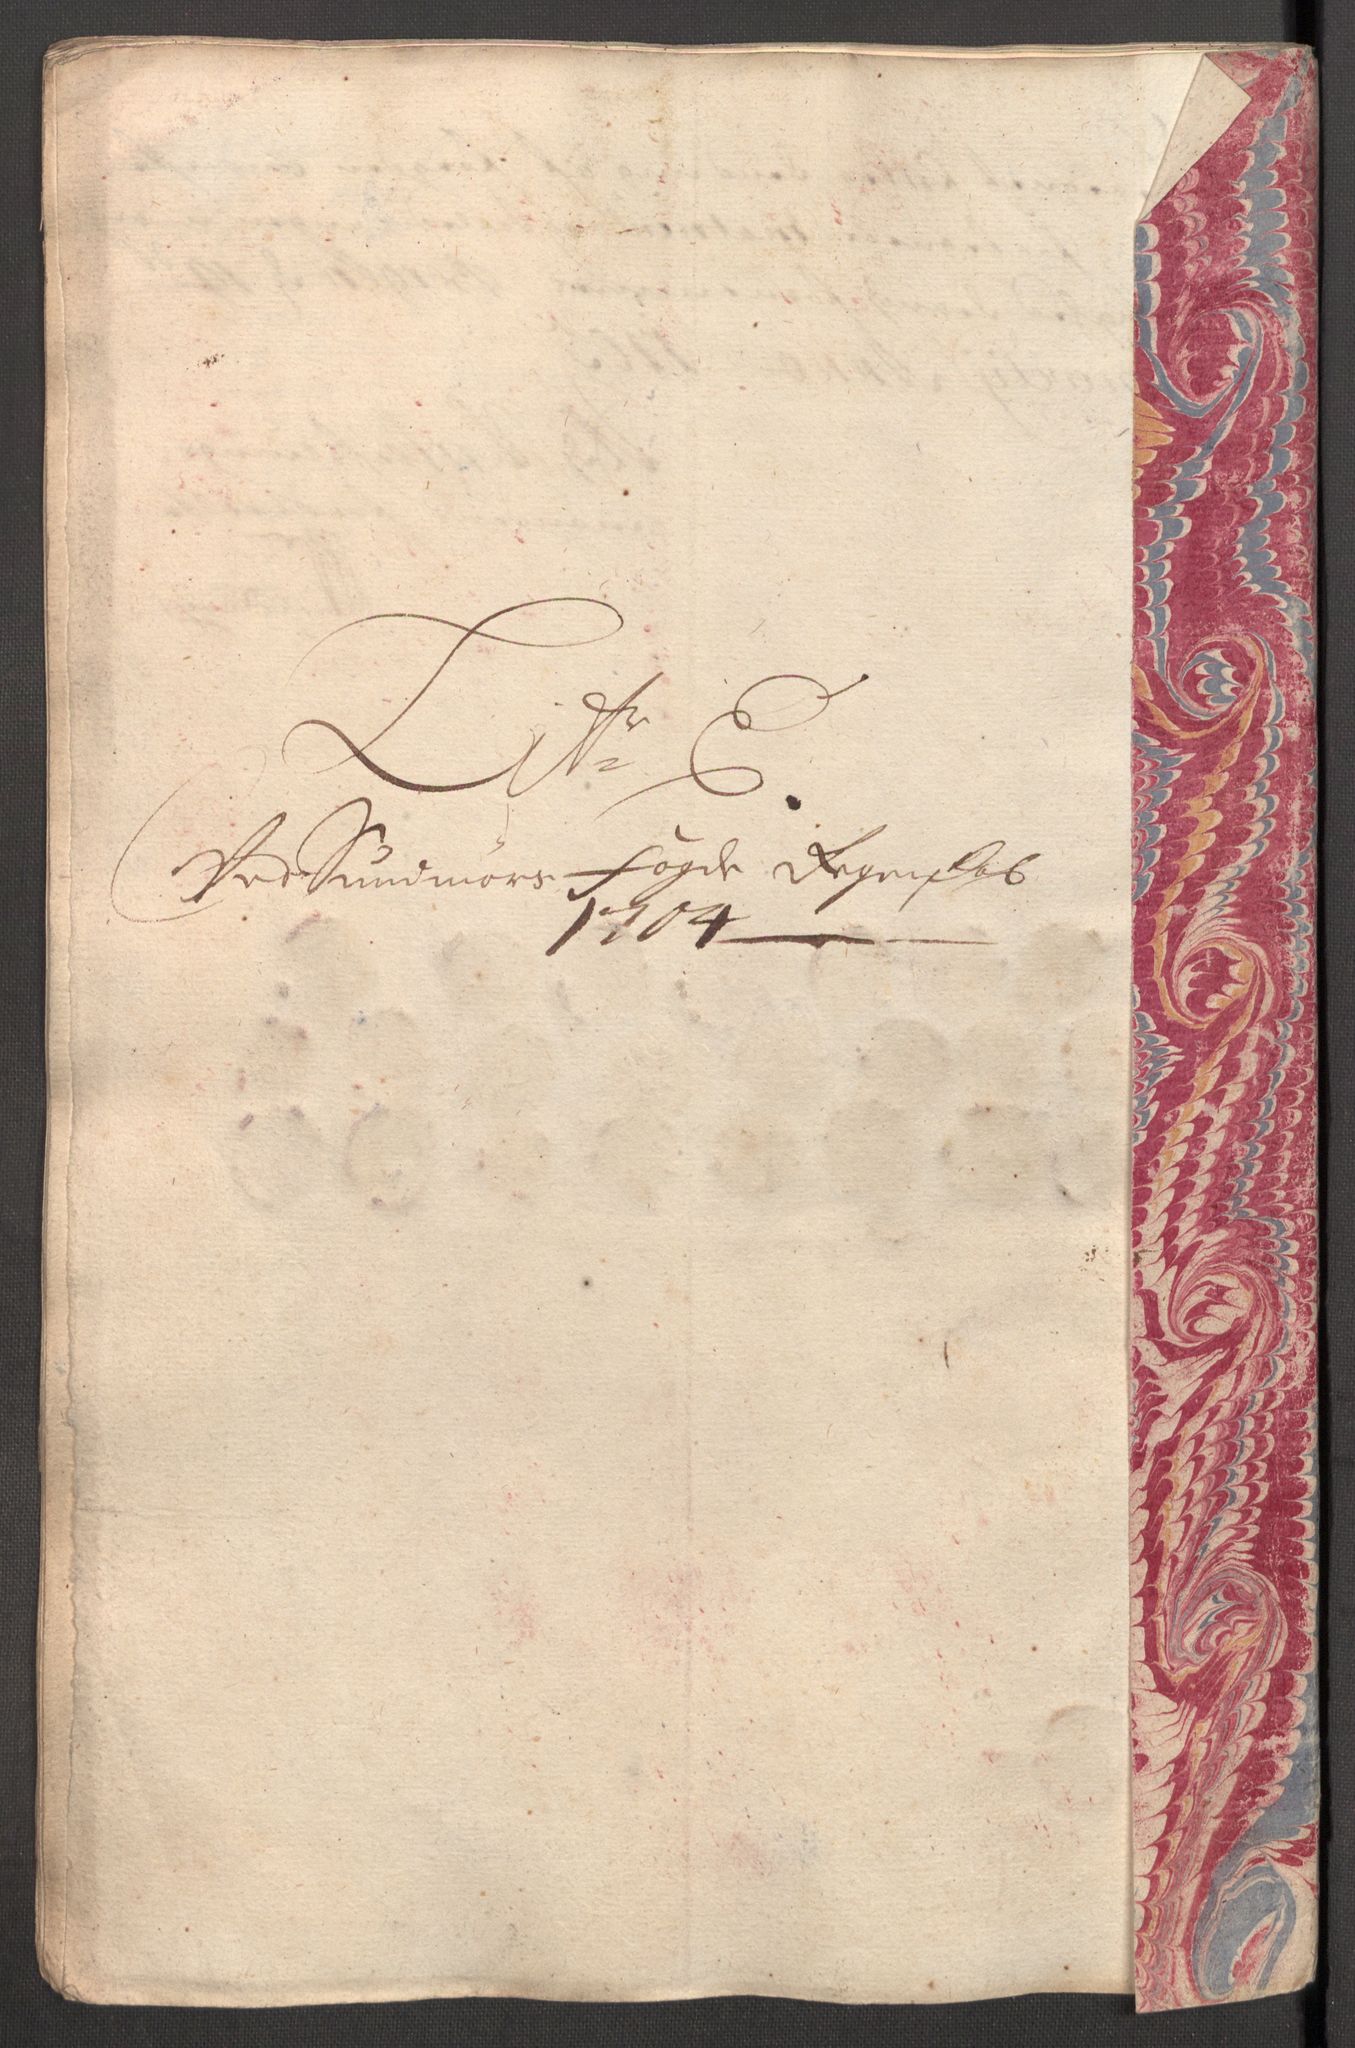 Litr E.
Ved Sundmörs fogde Regenskab
1704